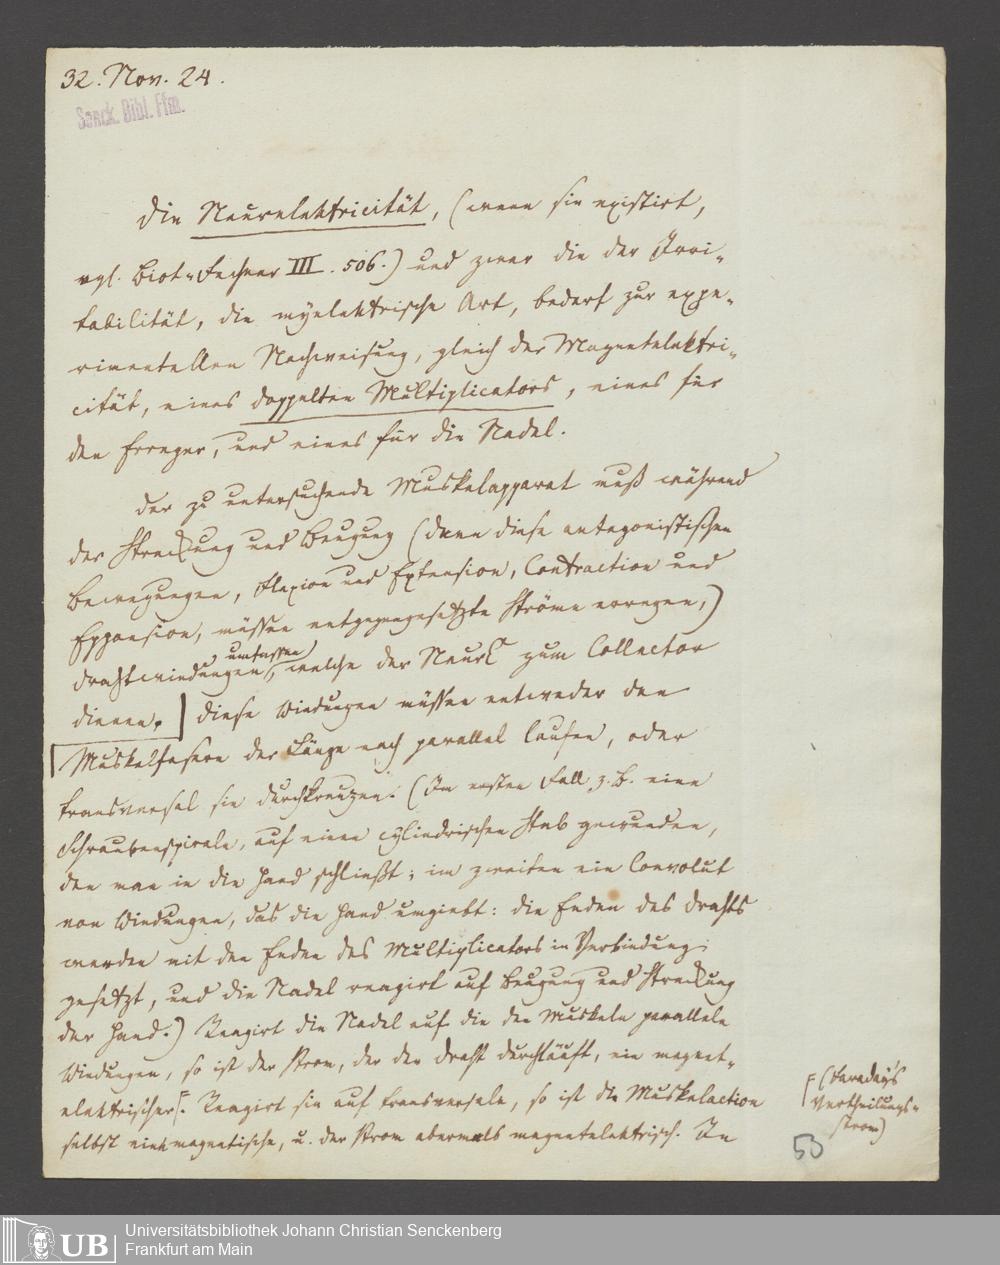 32. Nov. 24.
Senck. Bibl. Ffm.
Die Neurelektricität, (wenn sie existirt,
vgl. Biot-Fechner III. 506.) und zwar die der Irri-
tabilität, die myelektrische Art, bedarf zur expe-
rimentellen Nachweisung, gleich der Magnetelektri-
cität, eines doppelten Multiplicators, eines für
den Erreger, und eines für die Nadel.
Der zu untersuchende Muskelapparat muß während
der Streckung und Beugung (denn diese antagonistischen
Bewegungen, Flexion und Extension, Contraction und
Expansion, müssen entgegengesetzte Ströme erregen,)
umfassen
Drahtwindungen, welche der Neur. zum Collector
dienen. Diese Windungen müssen entweder den
Muskelfasern der Länge nach parallel laufen, oder
transversal sie durchkreuzen. (Im ersten Fall z. B. eine
Schraubenspirale, auf einen cylindrischen Stab gewunden,
den man in die Hand schließt; im zweiten ein Convolut
von Windungen, das die Hand umgiebt: die Enden des Drahts
werden mit den Enden des Multiplicators in Verbindung
gesetzt, und die Nadel reagirt auf Beugung und Streckung
der Hand.) Reagirt die Nadel auf die den Muskeln parallele
Windungen, so ist der Strom, der den Draht durchläuft, ein magnet-
elektrischer. Reagirt sie auf transversale, so ist die Muskelaction
selbst eine magnetische, u. der Strom abermals magnetelektrisch. In
(Faraday's
Vertheilungs-
strom)
53
UB
Universitätsbibliothek Johann Christian Senckenberg
Frankfurt am Main